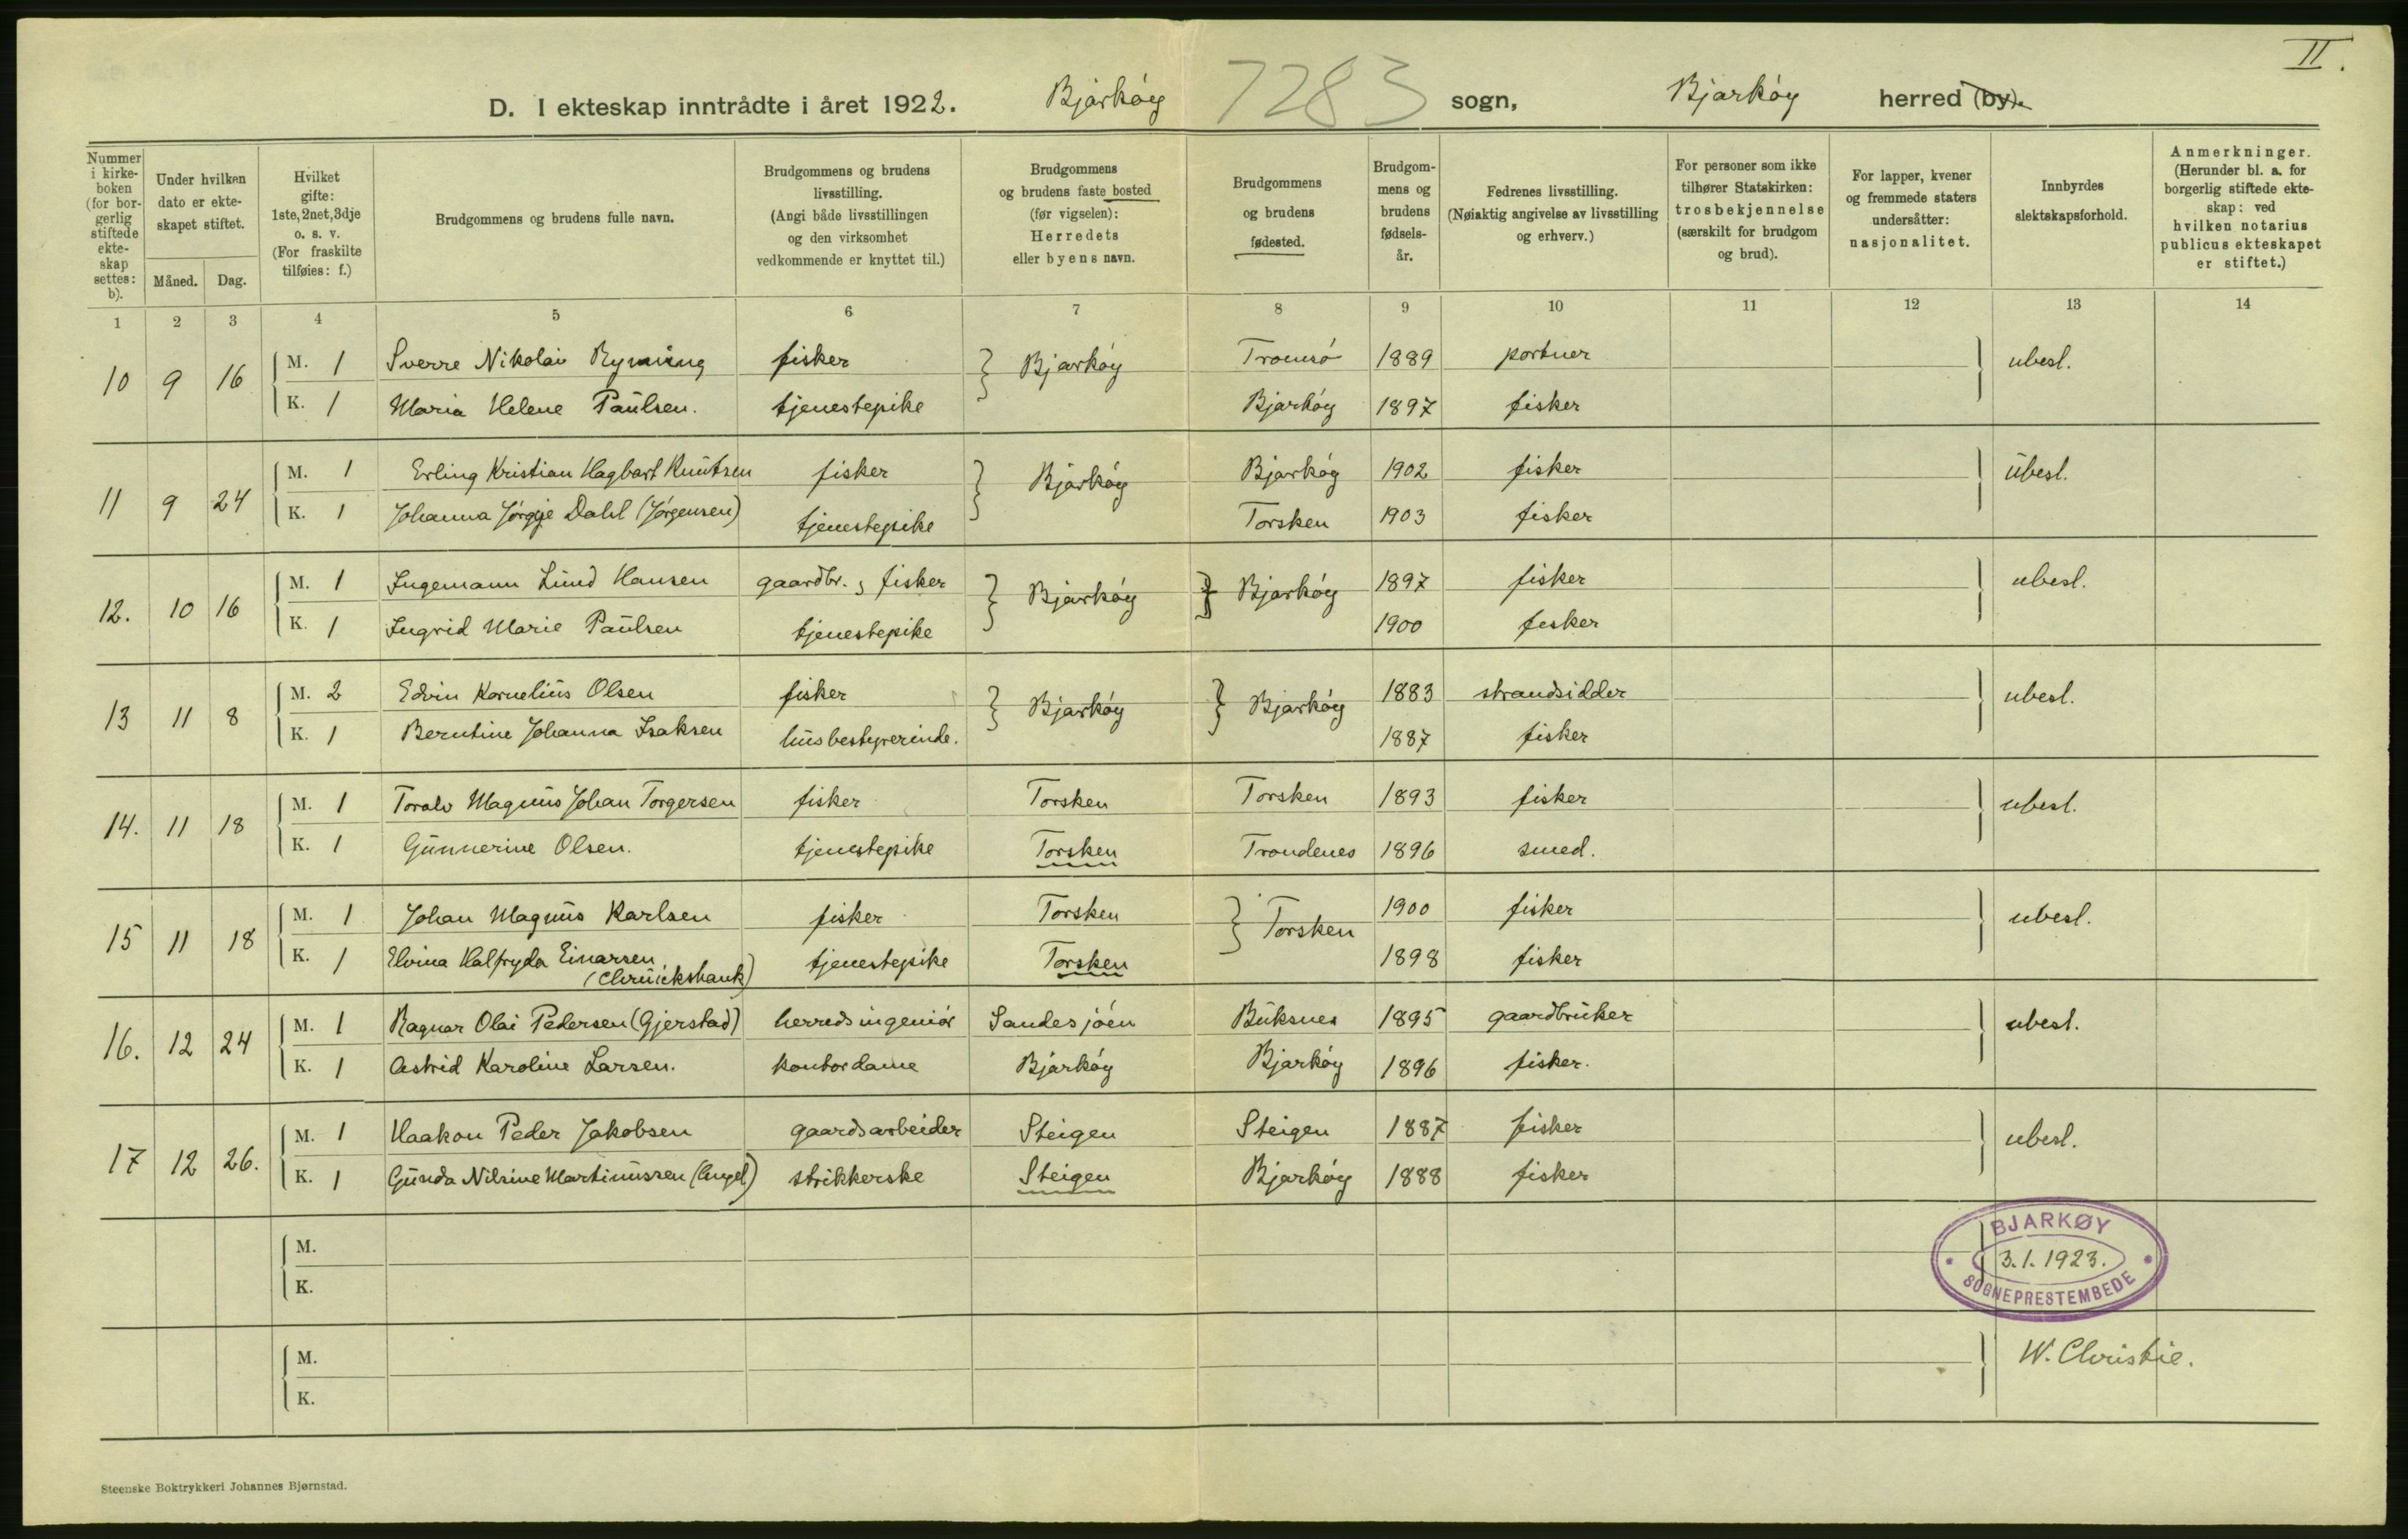 II.
D. I ekteskap inntrådte i året 1922. Bjarkøy 7283 sogn, Bjarkøy herred (by).
Nummer i kirkeboken (for borgerlig stiftede ekteskap settes: b).
Under hvilken dato er ekteskapet stiftet.
Måned. Dag.
Hvilket gifte: 1ste, 2net, 3dje o. s. v. (For fraskilte tilføies: f.)
Brudgommens og brudens fulle navn.
Brudgommens og brudens livsstilling. (Angi både livsstillingen og den virksomhet vedkommende er knyttet til.)
Brudgommens og brudens faste bosted (før vigselen): Herredets eller byens navn.
Brudgommens og brudens fødested.
Brudgommens og brudens fødselsår.
Fedrenes livsstilling. (Nøiaktig angivelse av livsstilling og erhverv.)
For personer som ikke tilhører Statskirken: trosbekjennelse (særskilt for brudgom og brud).
For lapper, kvener og fremmede staters undersåtter: nasjonalitet.
Innbyrdes slektskapsforhold.
Anmerkninger. (Herunder bl. a. for borgerlig stiftede ekteskap: ved hvilken notarius publicus ekteskapet er stiftet.)
1 2 3 4 5 6 7 8 9 10 11 12 13 14
10 9 16 M. 1 Sverre Nikolai Ryming fisker Bjarkøy Tromsø 1889 portner ubesl.
K. 1 Maria Helene Paulsen. tjenestepike Bjarkøy 1897 fisker
11 9 24 M. 1 Erling Kristian Hagbart Knutsen fisker Bjarkøy Bjarkøy 1902 fisker ubesl.
K. 1 Johanna Jørgje Dahl (Jørgensen) tjenestepike Torsken 1903 fisker
12. 10 16 M. 1 Ingemann Lund Hansen gaardbr. , fisker Bjarkøy Bjarkøy 1897 fisker ubesl.
K. 1 Ingrid Marie Paulsen tjenestepike 1900 fisker
13 11 8 M. 2 Edvin Kornelius Olsen fisker Bjarkøy Bjarkøy 1883 strandsidder ubesl.
K. 1 Berntine Johanna Isaksen husbestyrerinde. 1887 fisker
14. 11 18 M. 1 Toralv Magnus Johan Torgersen fisker Torsken Torsken 1893 fisker ubesl.
K. 1 Gunnerine Olsen. tjenestepike Torsken Trondenes 1896 smed.
15 11 18 M. 1 Johan Magnus Karlsen fisker Torsken Torsken 1900 fisker ubesl.
K. 1 Elvina Halfryda Einarsen tjenestepike Torsken 1898 fisker
(Chruickshank)
16. 12 24 M. 1 Ragnar Olai Pedersen (Gjerstad) herredsingeniør Sandesjøen Buksnes 1895 gaardbruker ubesl.
K. 1 Astrid Karoline Larsen. kontordame Bjarkøy Bjarkøy 1896 fisker.
17 12 26. M. 1 Haakon Peder Jakobsen gaardsarbeider Steigen Steigen 1887 fisker ubesl.
K. 1 Gunda Nilsine Martinussen (Angel) strikkerske Steigen Bjarkøy 1888 fisker
M.
K.
BJARKØY
3.1.1923.
SOGNEPRESTEMBEDE
M.
K.
W. Christie.
Steenske Boktrykkeri Johannes Bjørnstad.